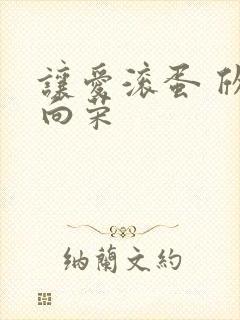 讓愛滾蛋 欣
向荣
納蘭文約